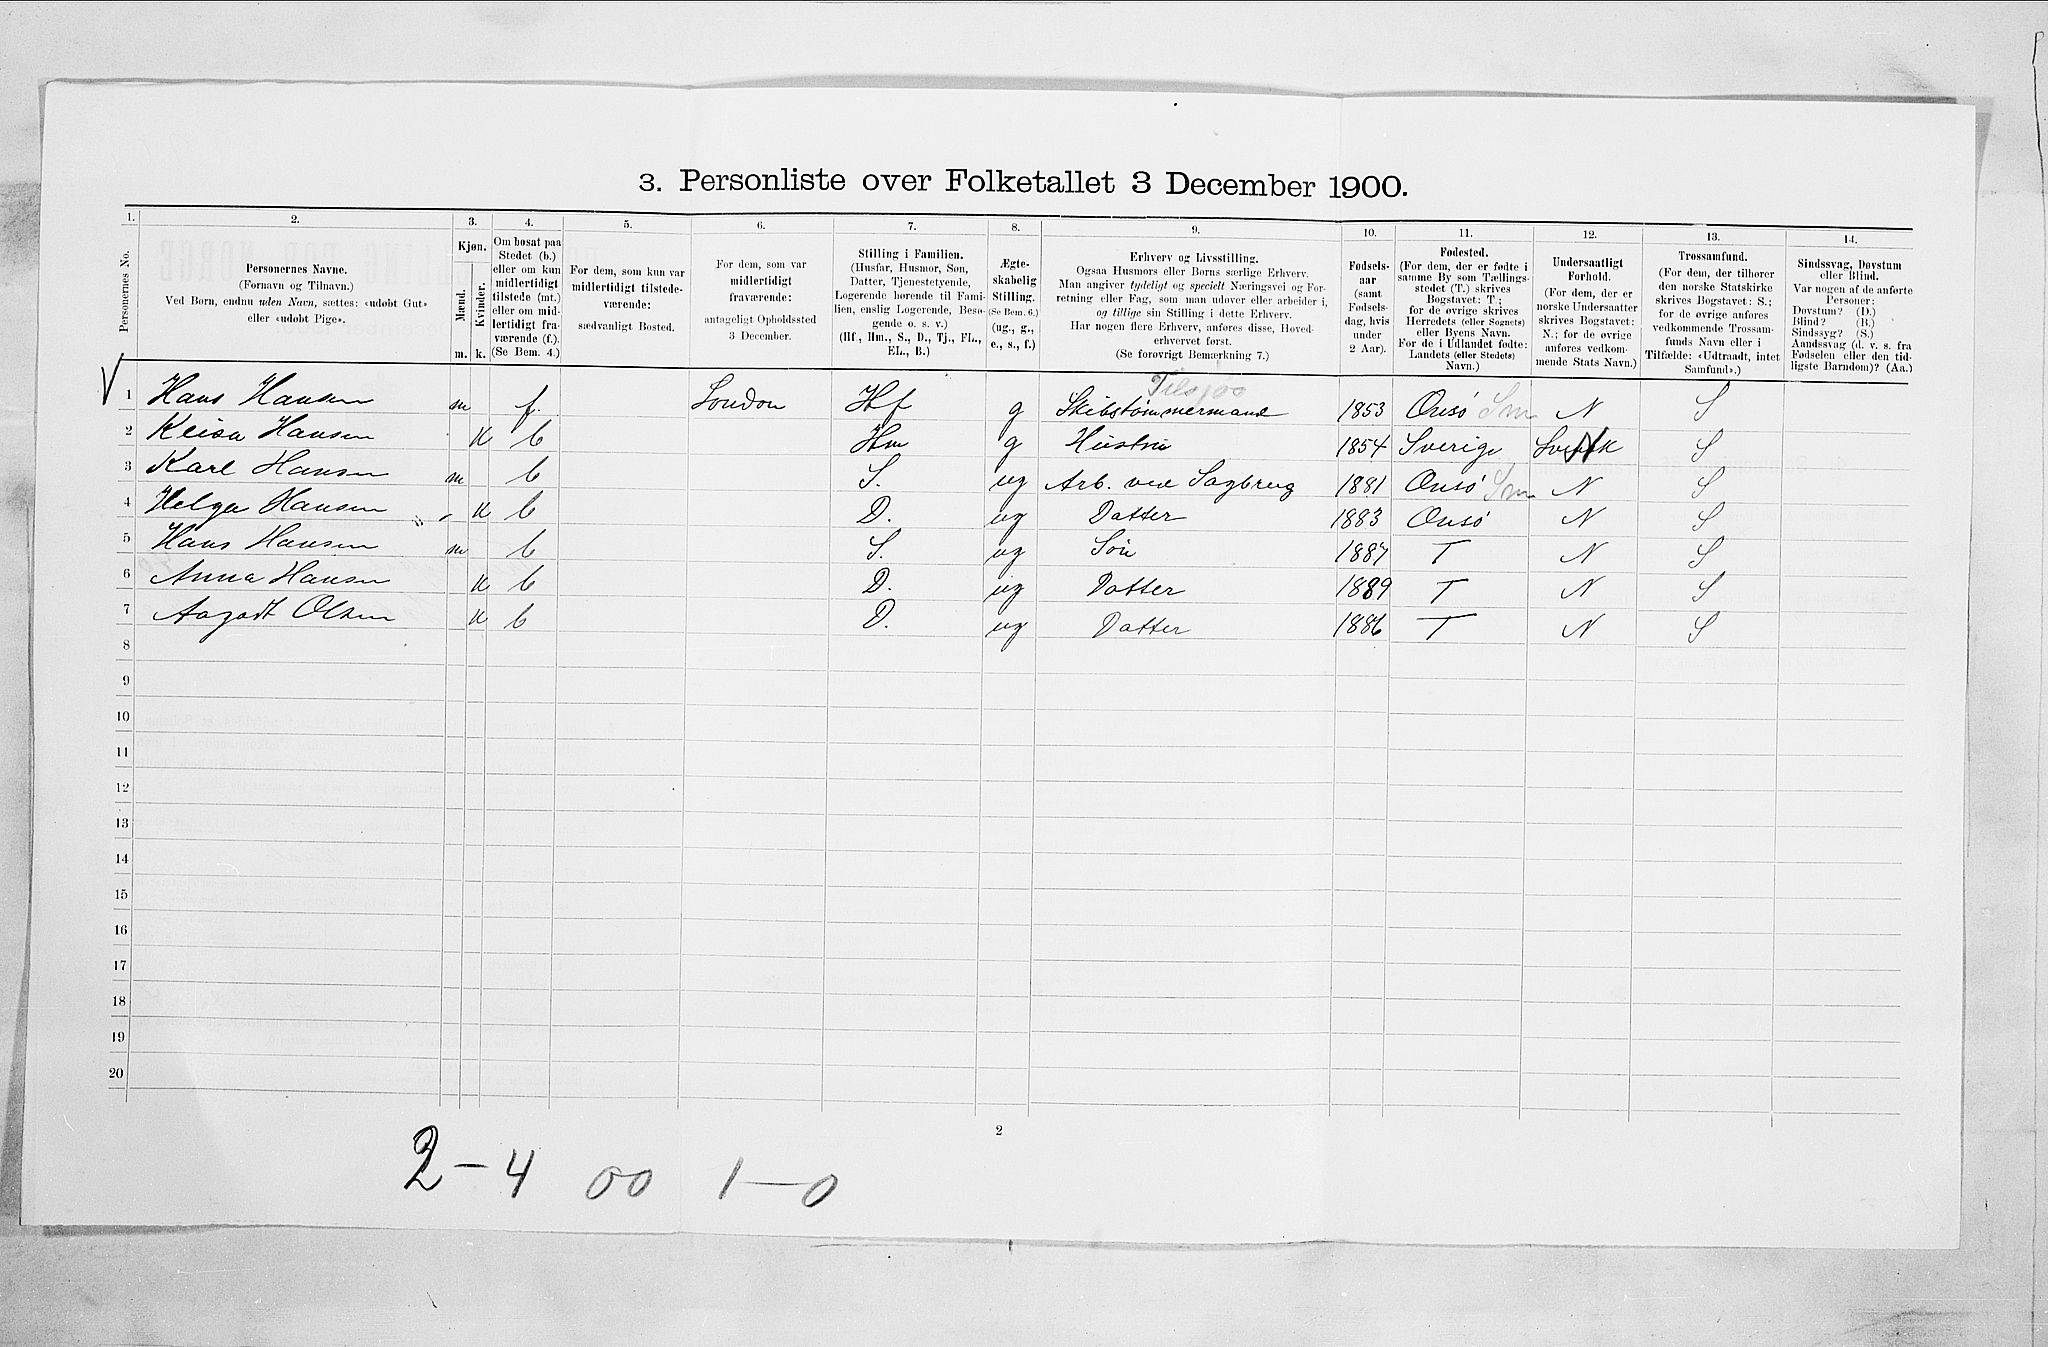 3. Personliste over Folketallet 3 December 1900.
1. 2. 3. 4. 5. 6. 7. 8. 9. 10. 11. 12. 13. 14.
Personernes No.
Personernes Navne.
(Fornavn og Tilnavn.)
Ved Børn, endnu uden Navn, sættes: «udøbt Gut»
eller «udøbt Pige».
Kjøn.
Mænd. Kvinder.
m. k.
Om bosat paa
Stedet (b.)
eller om kun
midlertidigt
tilstede (mt.)
eller om mid-
lertidigt fra-
værende (f.).
(Se Bem. 4.)
For dem, som kun var
midlertidigt tilstede-
værende:
sædvanligt Bosted.
For dem, som var
midlertidigt
fraværende:
antageligt Opholdssted
3 December.
Stilling i Familien.
(Husfar, Husmor, Søn,
Datter, Tjenestetyende,
Logerende hørende til Fami-
lien, enslig Logerende, Besø-
gende o. s. v.)
(Hf., Hm., S., D., Tj., FL.,
EL., B.)
Ægte-
skabelig
Stilling.
(Se Bem. 6.)
(ug., g.,
e., s., f.)
Erhverv og Livsstilling.
Ogsaa Husmors eller Børns særlige Erhverv.
Man angiver tydeligt og specielt Næringsvei og For-
retning eller Fag, som man udøver eller arbeider i,
og tillige sin Stilling i dette Erhverv.
Har nogen flere Erhverv, anføres disse, Hoved-
erhvervet først.
(Se forøvrigt Bemærkning 7.)
Fødsels-
aar
(samt
Fødsels-
dag, hvis
under
2 Aar).
Fødested.
(For dem, der er fødte i
samme By som Tællings-
stedet (T.) skrives
Bogstavet: T;
for de øvrige skrives
Herredets (eller Sognets)
eller Byens Navn.
For de i Udlandet fødte:
Landets (eller Stedets)
Navn.)
Undersaatligt
Forhold.
(For dem, der er
norske Undersaatter
skrives Bogstavet:
N.; for de øvrige
anføres vedkom-
mende Stats Navn.)
Trossamfund.
(For dem, der tilhører
den norske Statskirke
skrives Bogstavet: S.;
for de øvrige anføres
vedkommende Trossam-
funds Navn eller i
Tilfælde: «Udtraadt, intet
Samfund».)
Sindssvag, Døvstum
eller Blind.
Var nogen af de anførte
Personer:
Døvstum? (D.)
Blind? (B.)
Sindssyg? (S.)
Aandssvag (d. v. s. fra
Fødselen eller den tid-
ligste Barndom)? (Aa.)
1 Hans Hansen m f. London Hf g Skibstømmermand 1853 Onsø Sm N S
2 Keisa Hansen K b Hm g Hustru 1854 Sverige Svensk N S
3 Karl Hansen m b S. ug Arb. ved Sagbrug 1881 Onsø Sm N S
4 Helga Hansen K b D. ug Datter 1883 Onsø N S
5 Hans Hansen m b S. ug Søn 1887 T N S
6 Anna Hansen K b D. ug Datter 1889 T N S
7 Aagodt Olsen K b D. ug Datter 1886 T N S
8
9
10
11
12
13
14
15
16
17
18
19
20
2
2–4 00 1–0